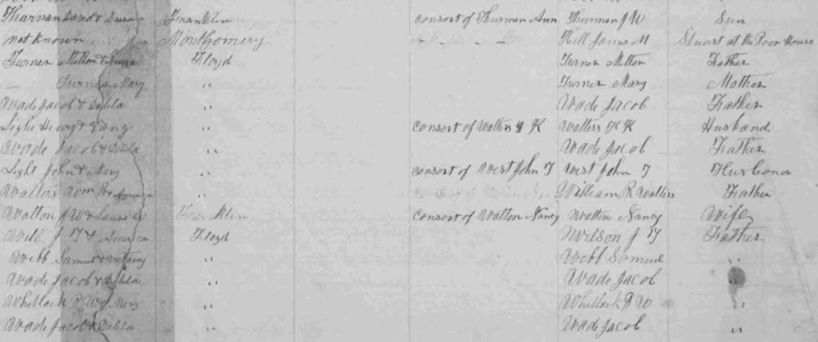 Thurman David & Susan Franklin consort of Thurman Ann Thurman J W Son
not known Montgomery Hill James M Stuart at the Poor House
Turner Milton & Floyd Turner Milton Father
Turner Mary " Turner Mary Mother
Wade Jacob & " Wade Jacob Father
Light Henry & " consort of Walters G K Walters G K Husband
Wade Jacob & " Wade Jacob Father
Light John & Mary " consort of West John T West John T Husband
Walters Wm R & " William R Walters Father
Walton J W & Franklin consort of Watton Nancy Watton Nancy Wife
J T & Floyd Wilson J T Father
Webb Samuel & " Webb Samuel "
Wade Jacob & " Wade Jacob "
Whitlock & Mary " Whitlock "
Wade Jacob & " Wade Jacob "